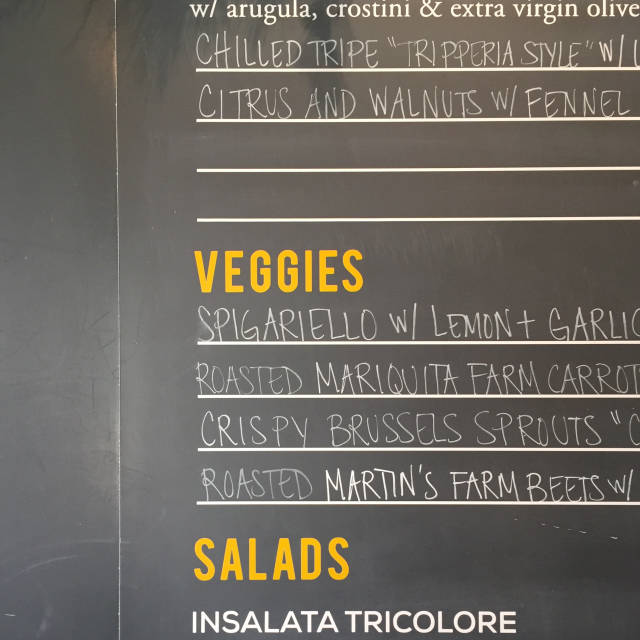 w/ arugula, crostini & extra virgin olive
CHILLED TRIPE "TRIPPERIA STYLE" W/
CITRUS AND WALNUTS W/ FENNEL
VEGGIES
SPIGARIELLO W/ LEMON + GARLIC
ROASTED MARIQUITA FARM CARROT
CRISPY BRUSSELS SPROUTS "C
ROASTED MARTIN'S FARM BEETS W/
SALADS
INSALATA TRICOLORE